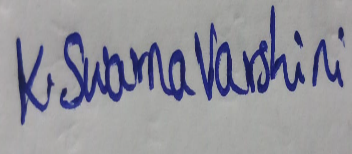 K. Swarna Varshini